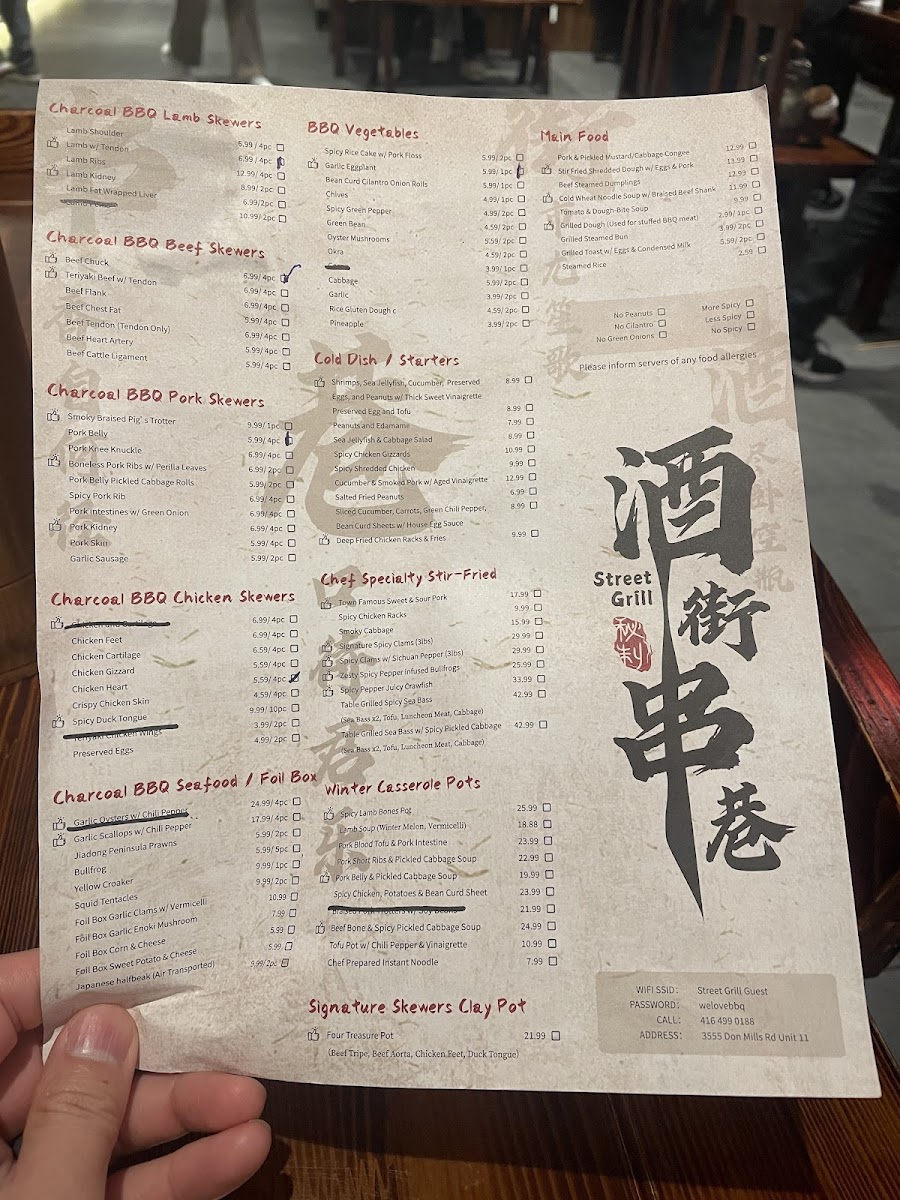 Charcoal BBQ Lamb Skewers
Lamb Shoulder 5.99/4pc
Lamb w/ Tendon 6.99/4pc
Lamb Ribs 12.99/4pc
Lamb Kidney 8.99/2pc
Lamb Fat Wrapped Liver 6.99/2pc
10.99/2pc
Charcoal BBQ Beef Skewers
Beef Chuck 6.99/4pc
Teriyaki Beef w/ Tendon 6.99/4pc
Beef Flank 6.99/4pc
Beef Chest Fat 5.99/4pc
Beef Tendon (Tendon Only) 6.99/4pc
Beef Heart Artery 5.99/4pc
Beef Cattle Ligament 5.99/4pc
Charcoal BBQ Pork Skewers
Smoky Braised Pig's Trotter 9.99/1pc
Pork Belly 5.99/4pc
Pork Knee Knuckle 6.99/4pc
Boneless Pork Ribs w/ Perilla Leaves 6.99/2pc
Pork Belly Pickled Cabbage Rolls 5.99/2pc
Spicy Pork Rib 6.99/4pc
Pork Intestines w/ Green Onion 6.99/4pc
Pork Kidney 6.99/4pc
Pork Skin 5.99/4pc
Garlic Sausage 5.99/2pc
Charcoal BBQ Chicken Skewers
Chicken and Cartilage 6.99/4pc
Chicken Feet 6.99/4pc
Chicken Cartilage 6.59/4pc
Chicken Gizzard 5.59/4pc
Chicken Heart 5.59/4pc
Crispy Chicken Skin 4.59/4pc
Spicy Duck Tongue 9.99/10pc
Teriyaki Chicken Wings 3.99/2pc
Preserved Eggs 4.99/2pc
Charcoal BBQ Seafood / Foil Box
Garlic Oysters w/ Chili Pepper 24.99/4pc
Garlic Scallops w/ Chili Pepper 17.99/4pc
Jiadong Peninsula Prawns 5.99/2pc
Bullfrog 5.99/5pc
Yellow Croaker 9.99/1pc
Squid Tentacles 9.99/2pc
Foil Box Garlic Clams w/ Vermicelli 10.99
Foil Box Garlic Enoki Mushroom 7.99
Foil Box Corn & Cheese 5.99
Foil Box Sweet Potato & Cheese 5.99
Japanese halfbeak (Air Transported) 9.99/2pc
BBQ Vegetables
Spicy Rice Cake w/ Pork Floss 5.99/2pc
Garlic Eggplant 5.99/1pc
Bean Curd Cilantro Onion Rolls 5.99/1pc
Chives 4.99/1pc
Spicy Green Pepper 4.99/2pc
Green Bean 4.59/2pc
Oyster Mushrooms 5.59/2pc
Okra 4.59/2pc
3.99/1pc
Cabbage 5.99/2pc
Garlic 3.99/2pc
Rice Gluten Dough c 4.59/2pc
Pineapple 3.99/2pc
Cold Dish / Starters
Shrimps, Sea Jellyfish, Cucumber, Preserved 8.99
Eggs, and Peanuts w/ Thick Sweet Vinaigrette
Preserved Egg and Tofu 8.99
Peanuts and Edamame 7.99
Sea Jellyfish & Cabbage Salad 8.99
Spicy Chicken Gizzards 10.99
Spicy Shredded Chicken 9.99
Cucumber & Smoked Pork w/ Aged Vinaigrette 12.99
Salted Fried Peanuts 6.99
Sliced Cucumber, Carrots, Green Chili Pepper, 8.99
Bean Curd Sheets w/ House Egg Sauce
Deep Fried Chicken Racks & Fries 9.99
Chef Specialty Stir-Fried
Town Famous Sweet & Sour Pork 17.99
Spicy Chicken Racks 9.99
Smoky Cabbage 15.99
Signature Spicy Clams (3lbs) 29.99
Spicy Clams w/ Sichuan Pepper (3lbs) 29.99
Zesty Spicy Pepper Infused Bullfrogs 25.99
Spicy Pepper Juicy Crawfish 33.99
Table Grilled Spicy Sea Bass 42.99
(Sea Bass x2, Tofu, Luncheon Meat, Cabbage)
Table Grilled Sea Bass w/ Spicy Pickled Cabbage 42.99
(Sea Bass x2, Tofu, Luncheon Meat, Cabbage)
Winter Casserole Pots
Spicy Lamb Bones Pot 25.99
Lamb Soup (Winter Melon, Vermicelli) 18.88
Pork Blood Tofu & Pork Intestine 23.99
Pork Short Ribs & Pickled Cabbage Soup 22.99
Pork Belly & Pickled Cabbage Soup 19.99
Spicy Chicken, Potatoes & Bean Curd Sheet 23.99
Braised Pork Trotters w/ Soy Beans 21.99
Beef Bone & Spicy Pickled Cabbage Soup 24.99
Tofu Pot w/ Chili Pepper & Vinaigrette 10.99
Chef Prepared Instant Noodle 7.99
Signature Skewers Clay Pot
Four Treasure Pot 21.99
(Beef Tripe, Beef Aorta, Chicken Feet, Duck Tongue)
Main Food
Pork & Pickled Mustard/Cabbage Congee 12.99
Stir Fried Shredded Dough w/ Eggs & Pork 13.99
Beef Steamed Dumplings 12.99
Cold Wheat Noodle Soup w/ Braised Beef Shank 11.99
Tomato & Dough-Bite Soup 9.99
Grilled Dough (Used for stuffed BBQ meat) 2.99/1pc
Grilled Steamed Bun 3.99/2pc
Grilled Toast w/ Eggs & Condensed Milk 5.99/2pc
Steamed Rice 2.59
No Peanuts More Spicy
No Cilantro Less Spicy
No Green Onions No Spicy
Please inform servers of any food allergies
酒街串巷
Street
Grill
秘制
WIFI SSID: Street Grill Guest
PASSWORD: welovebbq
CALL: 416 499 0188
ADDRESS: 3555 Don Mills Rd Unit 11